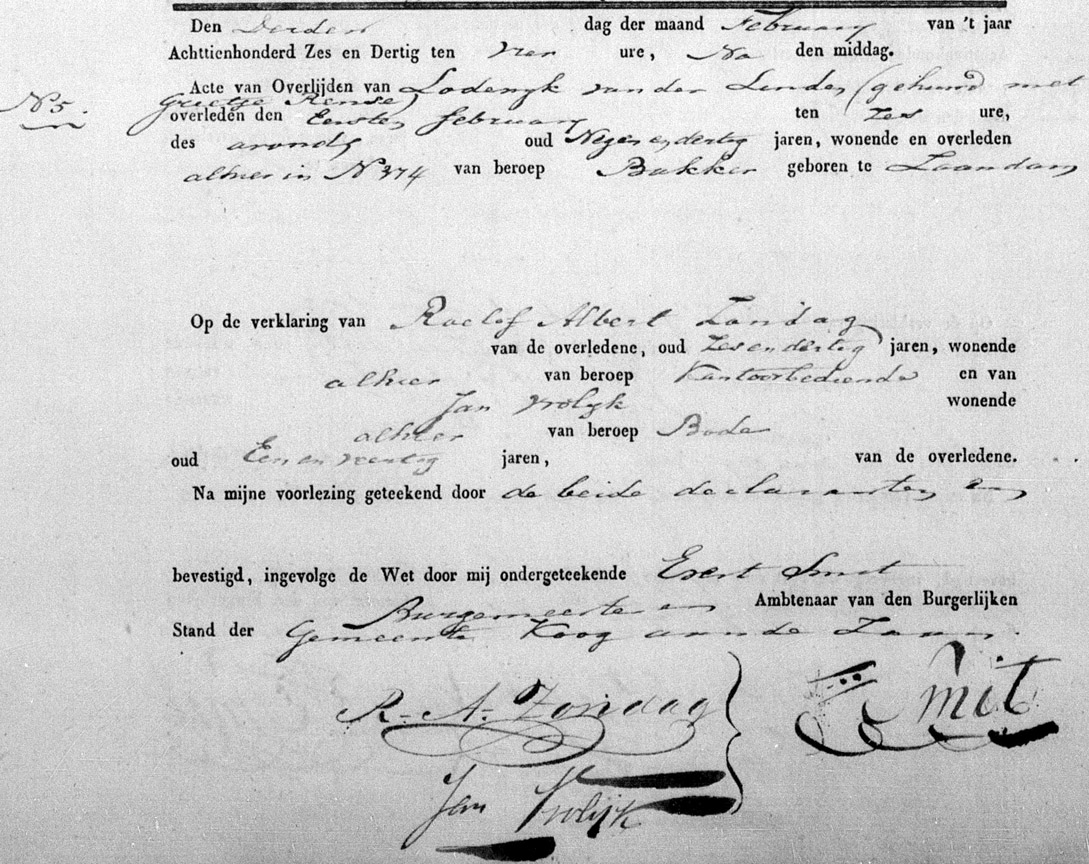 Den Derden dag der maand February van 't jaar
Achttienhonderd Zes en Dertig ten vier ure, Na den middag.
Acte van Overlijden van Lodewyk van der Linden (gehuwd met
No 5. Grietje Rense)
overleden den Eersten february ten zes ure,
des avonds oud Negen en dertig jaren, wonende en overleden
alhier in No 374 van beroep Bakker geboren te Zaandam
Op de verklaring van Roelof Albert Zondag
van de overledene, oud Zes en dertig jaren, wonende
alhier van beroep Kantoorbediende en van
Jan Vrolyk wonende
alhier van beroep Bode
oud Een en veertig jaren, van de overledene.
Na mijne voorlezing geteekend door de beide declaranten en
bevestigd, ingevolge de Wet door mij ondergeteekende Evert Smit
Burgemeester en Ambtenaar van den Burgerlijken
Stand der Gemeente Koog aan de Zaan.
R. A. Zondag
E Smit
Jan Vrolijk